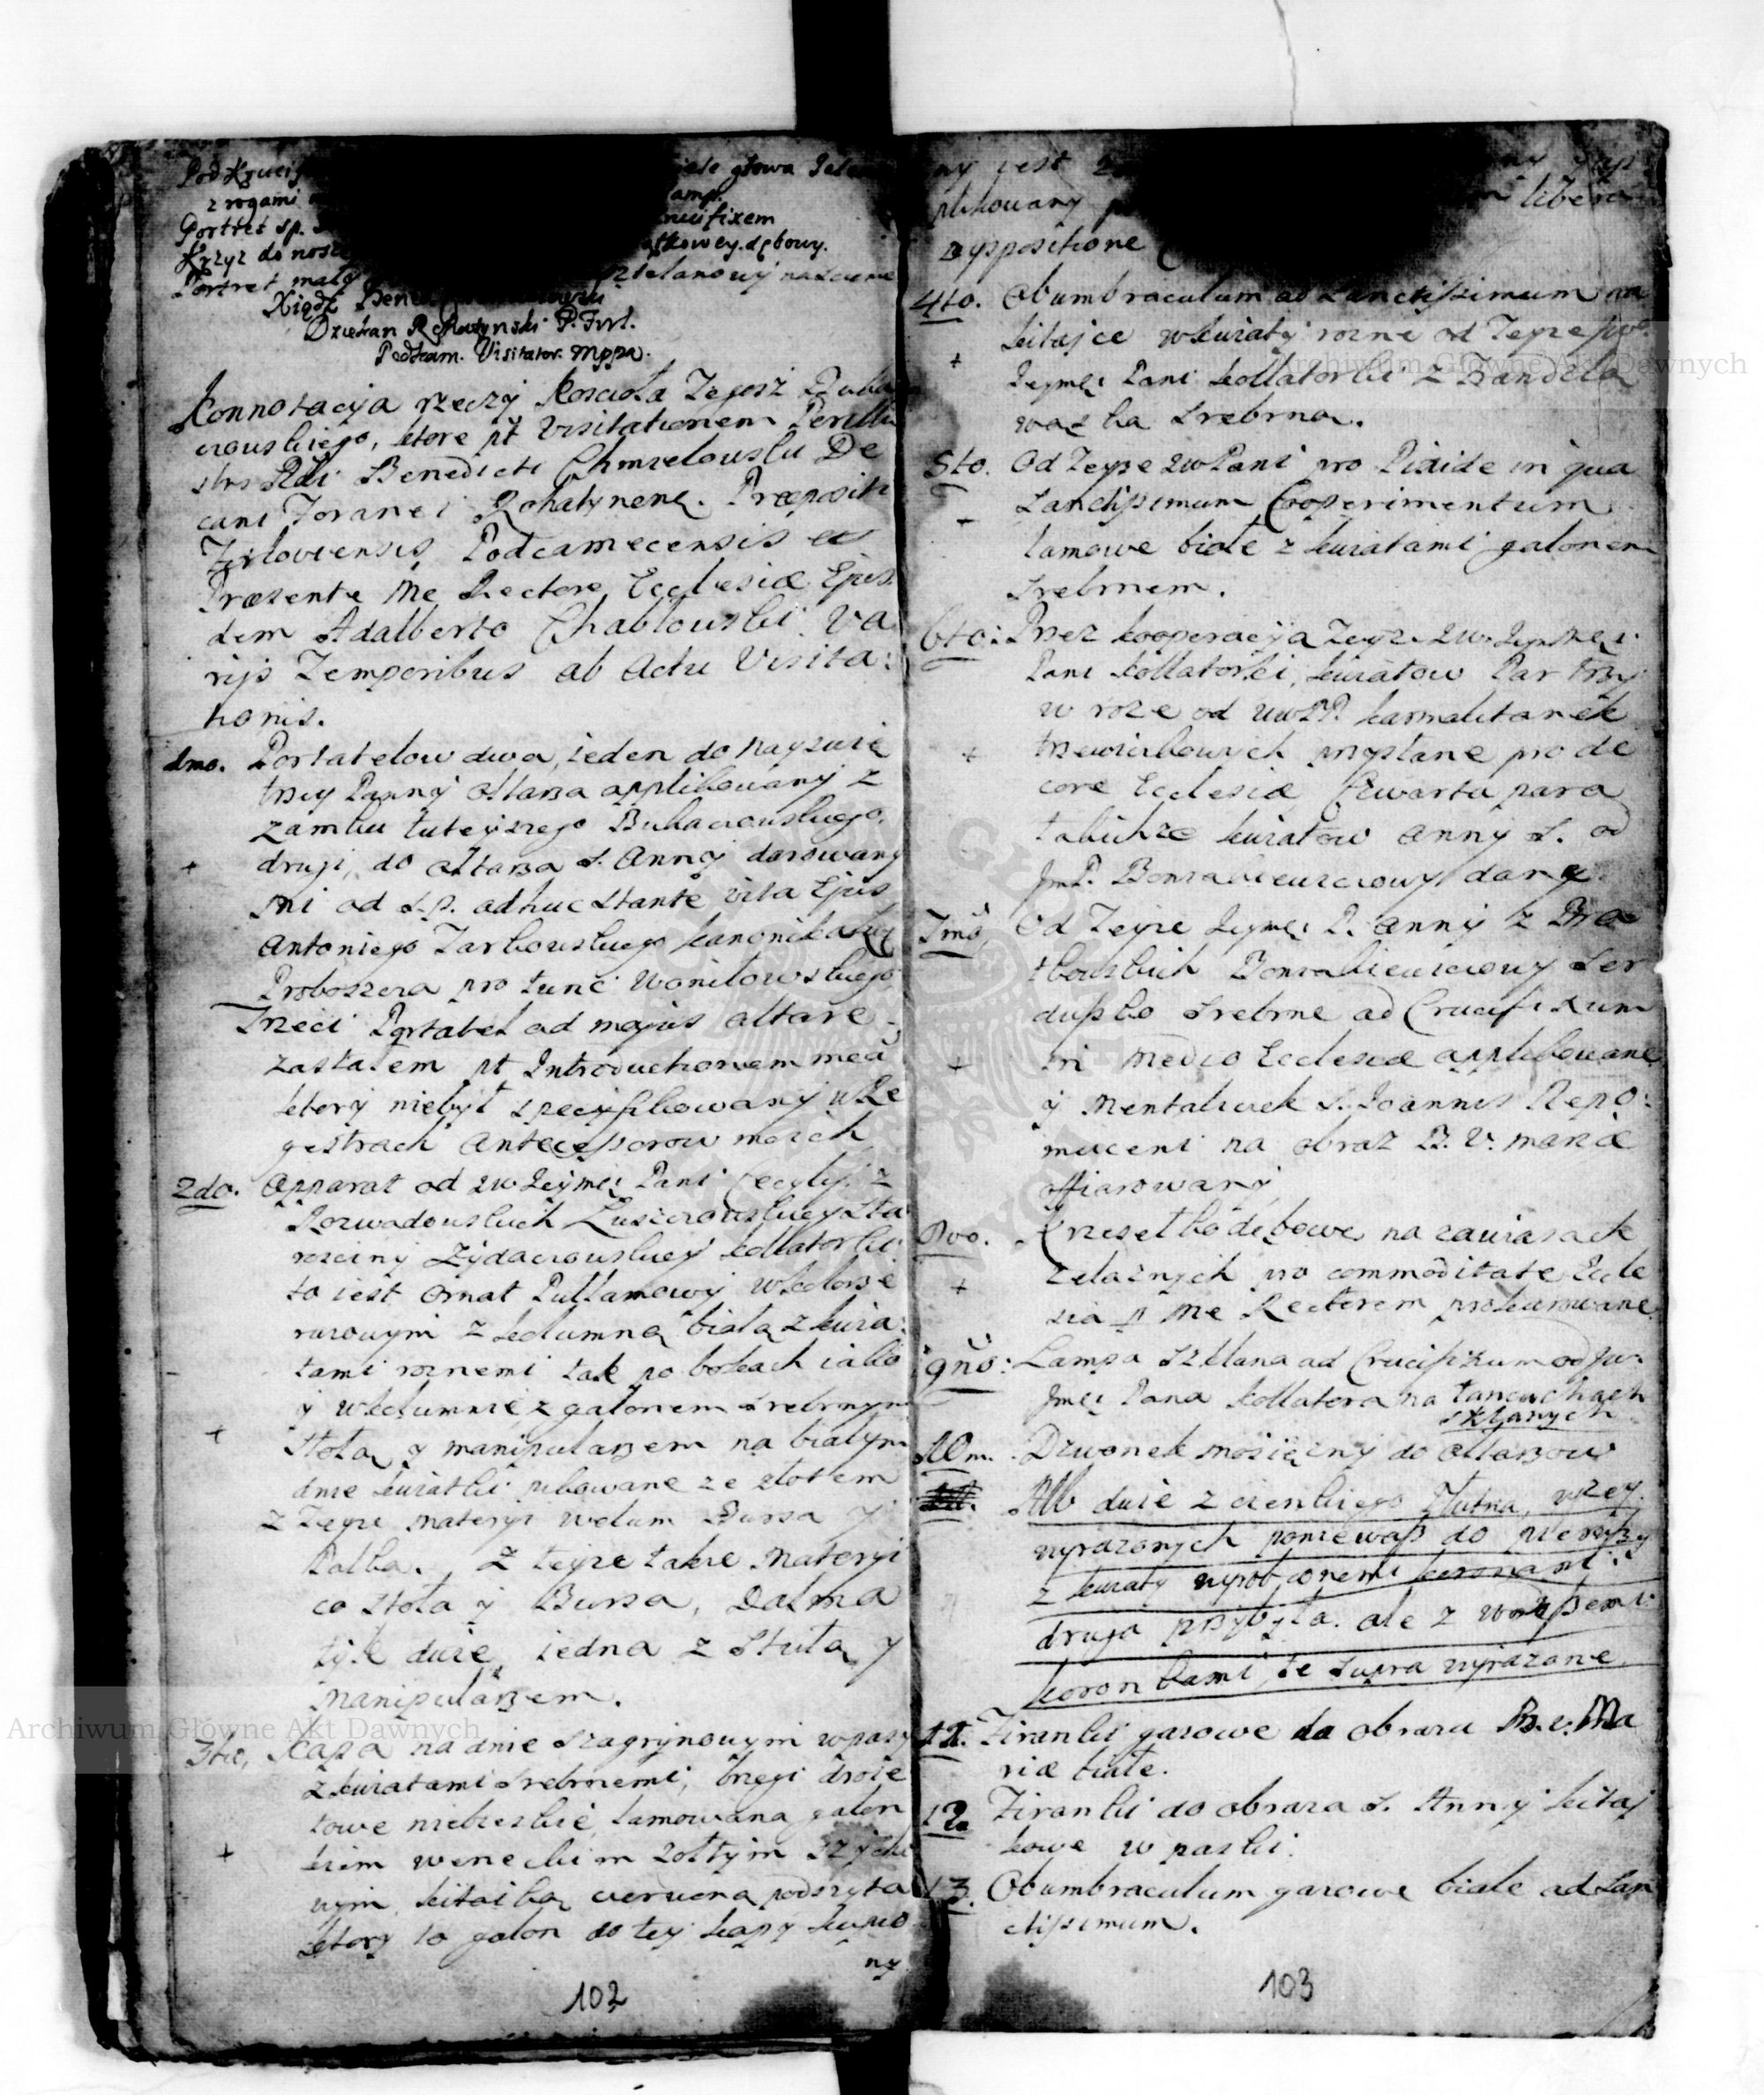 Pod Krucif
iele głowa Jele
z rogami
amp.
Portret sp.
rucifixem
Krzyz do nosz
ątkowey dębowy.
Portret mały
Xiądz Bene
Dziekan Rohatynski P. Firl.
Podkam. Visitator mppa.
Konnotacyia rzeczy Koscioła Tegosz Buka
czowskiego, ktore pt Visitationem Perillu
stris Rdi Benedicti Chmielowski De
cani Foranei Rohatynens. Præpositi
Firloviensis, Podcamecensis et
Præsente Me Rectore Ecclesiæ Ejus
dem Adalberto Chabłowski. Va
rijs Temporibus ab Actu Visita:
tionis.
1mo. Portatelow dwa, ieden do Nayswię
trzey Panny ołtarza applikowany z
Zamku tuteyszego Bukaczowskiego.
drugi, do ołtarza S. Anny darowany
mi od S.P. adhuc stante vita Ejus
Antoniego Tarkowskiego kanonika
Proboszcza pro tunc Woniłowskiego
Trzeci Portatel ad majus altare
zastałem pt Introductionem mea
ktory niebył specyfikowany w Re
gestrach Antecessorow moich
2do. Apparat od Jeymci Pani Cecylij z
Rozwadowskich Suszczowskiey Sta
rosciny Zydaczowskiey kollatorki.
to iest Ornat Pułlamowy w kolorze
rozowym z kolumną biała z kwia:
tami roznemi tak po bokach iako
y w kolumnie z galonem srebrnym
Stoła y manipularzem na białym
dnie kwiatki rubowane ze złotem
z Teyze materyi welum Bursa y
Palka. z teyze takze Materyi
co stoła y Bursa, Dalma
tyk dwie, iedna z Stuła y
Manipularzem.
3tio, Kapa na dnie szagrynowym w pasy
z kwiatami srebrnemi, brzegi droie
towe niebieskie, lamowana galon
kiem weneckim zołtym szychi
wym, kitaiką czerwona podszyta
ktory to galon do tey kapy kupio
ny
102
ny jest
plikowany
libera
Dyspositione
4to. Obumbraculum ad Sanctissimum na
kitayce w kwiaty rozne od Teyze
Jeymci Pani kollatorki z Frandzla
wąska srebrna.
5to. Od Teyze Pani pro Pixide in qua
Sanctissimum Cooperimentum
lamowe białe z kwiatami galonem
srebrnem.
6to: Przez kooperacyia Teyze Jeymci
Pani kollatorki, kwiatow Par trzy
w roze od karmelitanek
trzewiczkowych przysłane pro de
core Ecclesiæ Czwarta para
takichze kwiatow Anny S. od
JmP. Bonrakiewiczowy dane
7mo, Od Teyze Jeymci P. Anny z
Bonrakiewiczowy Ser
duszko srebrne ad Crucifixum
in medio Ecclesiæ applikowane
y Mentalicek S. Joannis Nepo:
muceni na obraz B.V. Mariæ
offiarowany
8vo. Krzesełko dębowe na zawiasach
zelaznych pro commoditate Eccle
sia p Me Rectorem prokurowane
9no: Lampa szklana ad Crucifixum od Jw.
Jmci Pana kollatora na łancuchach
szklanych
10m. Dzwonek mosięzny do ołtarzow
Alb dwie z cienkiego płutna, wzey
wyrazonych poniewasz do pierwszy
z kwiaty wyrobionemi koronami.
druga przybyła. ale z węższemi
koronkami, te supra wyrazone.
11. Firanki gazowe do obrazu B.V. Ma
riæ białe.
12. Firanki do obraza S. Anny kitay
kowe w paski.
13. Obumbraculum gazowe białe ad San
ctissimum.
103
Archiwum Główne Akt Dawnych
Archiwum Główne Akt Dawnych